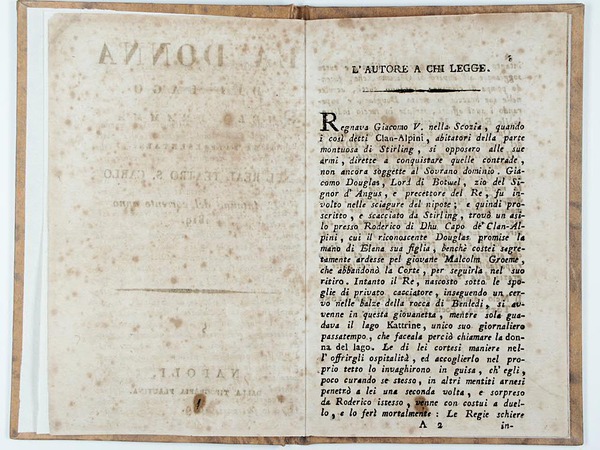 L'AUTORE A CHI LEGGE.
Regnava Giacomo V. nella Scozia, quando
i così detti Clan-Alpini, abitatori della parte
montuosa di Stirling, si opposero alle sue
armi, dirette a conquistare quelle contrade,
non ancora soggette al Sovrano dominio. Gia-
como Douglas, Lord di Botwel, zio del Si-
gnor d'Angus, e precettore del Re, fu in-
volto nelle sciagure del nipote; e quindi pro-
scritto, e scacciato da Stirling, trovò un asi-
lo presso Roderico di Dhu Capo de' Clan-Al-
pini, cui il riconoscente Douglas promise la
mano di Elena sua figlia, benchè costei segre-
tamente ardesse pel giovane Malcolm Groeme,
che abbandonò la Corte, per seguirla nel suo
ritiro. Intanto il Re, nascosto sotto le spo-
glie di privato cacciatore, inseguendo un cer-
vo nelle balze della rocca di Benledì, si av-
venne in questa giovanetta, mentre sola gua-
dava il lago Kattrine, unico suo giornaliero
passatempo, che faceala perciò chiamare la don-
na del lago. Le di lei cortesi maniere nel-
l'offrirgli ospitalità, ed accoglierlo nel pro-
prio tetto lo invaghirono in guisa, ch'egli,
poco curando se stesso, in altri mentiti arnesi
penetrò a lei una seconda volta, e sorpreso
da Roderico istesso, venne con costui a duel-
lo, e lo ferì mortalmente: Le Regie schiere
A 2 in-